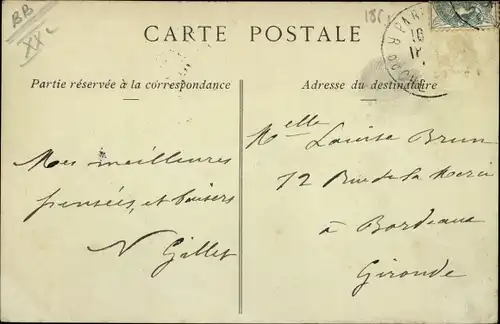 BB
XX
CARTE POSTALE
Partie réservée à la correspondance
Adresse du destinataire
Mes meilleures
pensées, et baisers
N Gillet
Melle Louise Brun
12 Rue de la Merci
à Bordeaux
Gironde